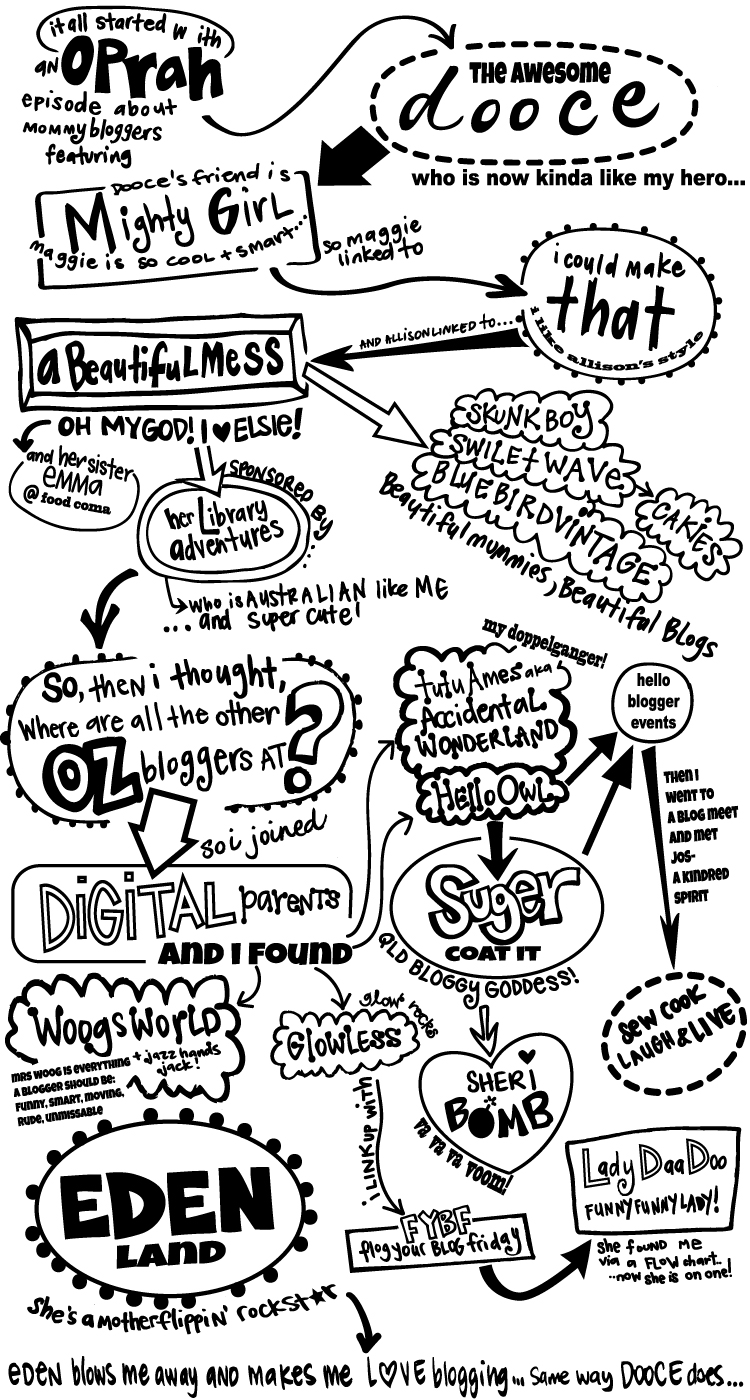 it all started with
an OPrah
episode about
mommy bloggers
featuring
THE AWESOME
dooce
who is now kinda like my hero...
DOOCE'S friend is
Mighty GirL
maggie is so cool + smart...
so maggie
linked to
i could make
that
i like allison's style
AND ALLISON LINKED to...
a BeautifuL MeSS
OH MY GOD! I ♥ ELSIE!
and her sister
emma
@ food coma
SPONSORED BY...
her Library
adventures
who is AUSTRALIAN like ME
... and super cute!
SKUNKBOY
SWILEt WAVE
BLUEBIRDVINTAGE
CAKIES
Beautiful mummies, Beautiful Blogs
So, then i thought,
where are all the other
OZ bloggers AT?
so i joined
DiGiTAL parents
AND I FOUND
my doppelganger!
tutu Ames aka
Accidental
WONDERLAND
Hello Owl
hello
blogger
events
Suger
COAT IT
QLD BLOGGY GODDESS!
THEN I
WENT TO
A BLOG MEET
AND MET
JOS-
A KINDRED
SPIRIT
Sew COOK
LAUGH & LIVE
WoogsWORLD
MRS WOOG IS EVERYTHING
A BLOGGER SHOULD BE:
FUNNY, SMART, MOVING,
RUDE, UNMISSABLE
+ jazz hands
jack!
glow rocks
GlowLess
i LINK UP with
SHERI
BOMB
va va va voom!
FYBF
flog your BLOG friday
Lady DaaDoo
FUNNY FUNNY LADY!
she found me
via a FLOW chart..
..now she is on one!
EDEN
LAND
she's a motherflippin' rockst★r
eden blows me away and makes me L♥VE blogging... same way DOOCE does...